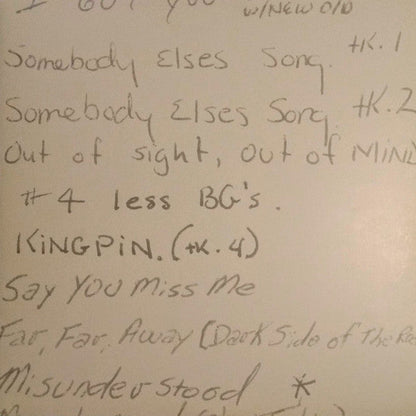 I GOT YOU W/NEW O/D
Somebody Elses Song. tK. 1
Somebody Elses Song tK. 2
Out of sight, Out of MIND
#4 less BG's.
KiNGPiN. (tK. 4)
Say You Miss Me
Far, Far, Away (Dark Side of The
Misunderstood *